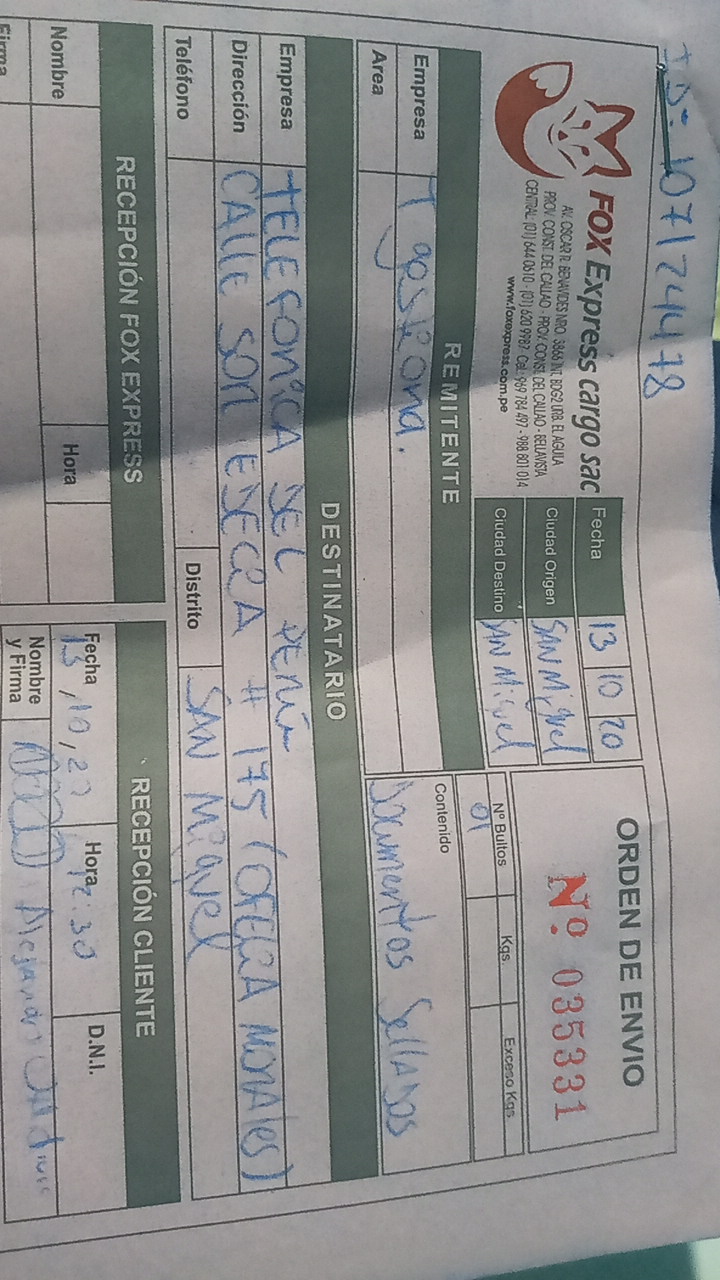 ID: 1071244478
FOX Express cargo sac
AV. OSCAR R. BENAVIDES NRO. 3866 INT. BDG2 URB. EL AGUILA
PROV. CONST. DEL CALLAO - PROV. CONST. DEL CALLAO - BELLAVISTA
CENTRAL (01) 644 0610 - (01) 620 9987 Cel.: 969 784 497 - 988 801 014
www.foxexpress.com.pe
Fecha 13 10 20
Ciudad Origen SAN Miguel
Ciudad Destino SAN Miguel
ORDEN DE ENVIO
Nº. 035331
REMITENTE
Empresa T gestiona.
Area
Nº Bultos Kgs. Exceso Kgs.
01
Contenido
Documentos Sellados
DESTINATARIO
Empresa TELEFONICA DEL PERÚ
Dirección CALLE SON # 175 (OFELIA MONALES)
Teléfono Distrito SAN Miguel
RECEPCIÓN FOX EXPRESS
Nombre Hora
Firma
RECEPCIÓN CLIENTE
Fecha 13,10,20 Hora 12:30 D.N.I.
Nombre
y Firma